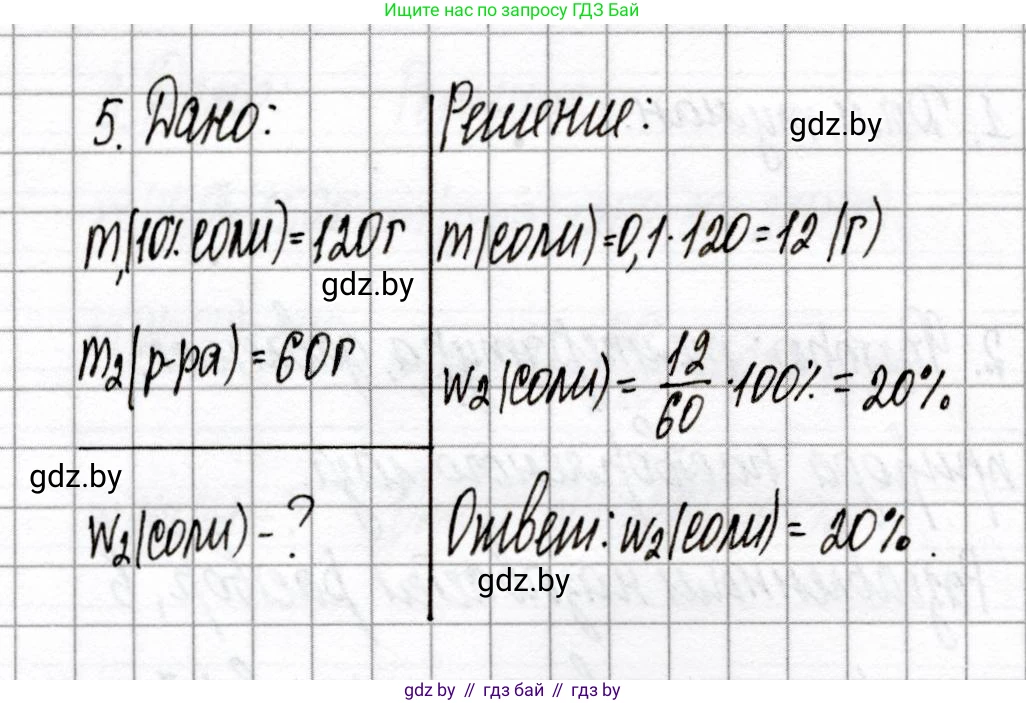 Ищите нас по запросу ГДЗ Бай
5. Дано:
Решение:
gdz.by
m₁(10% соли)=120г
m(соли)=0,1·120=12 (г)
gdz.by
m₂(р-ра)=60г
w₂(соли) = 12/60 ·100% = 20%
gdz.by
w₂(соли) - ?
Ответ: w₂(соли) = 20%.
gdz.by
gdz by // гдз бай // gdz by